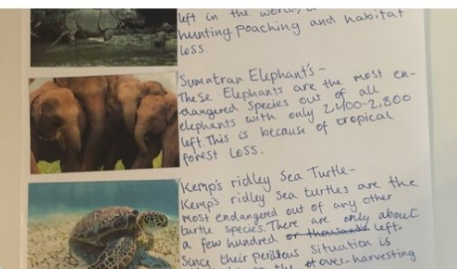 left in the world
hunting poaching and habitat
loss.
Sumatran Elephant's -
These Elephants are the most en-
dangered species out of all
elephants with only 2,400-2,800
left. This is because of tropical
forest loss.
Kemp's ridley Sea Turtle -
Kemp's ridley Sea turtles are the
most endangered out of any other
turtle species. There are only about
a few hundred or thousands left.
Since their perilous situation is
to the over-harvesting